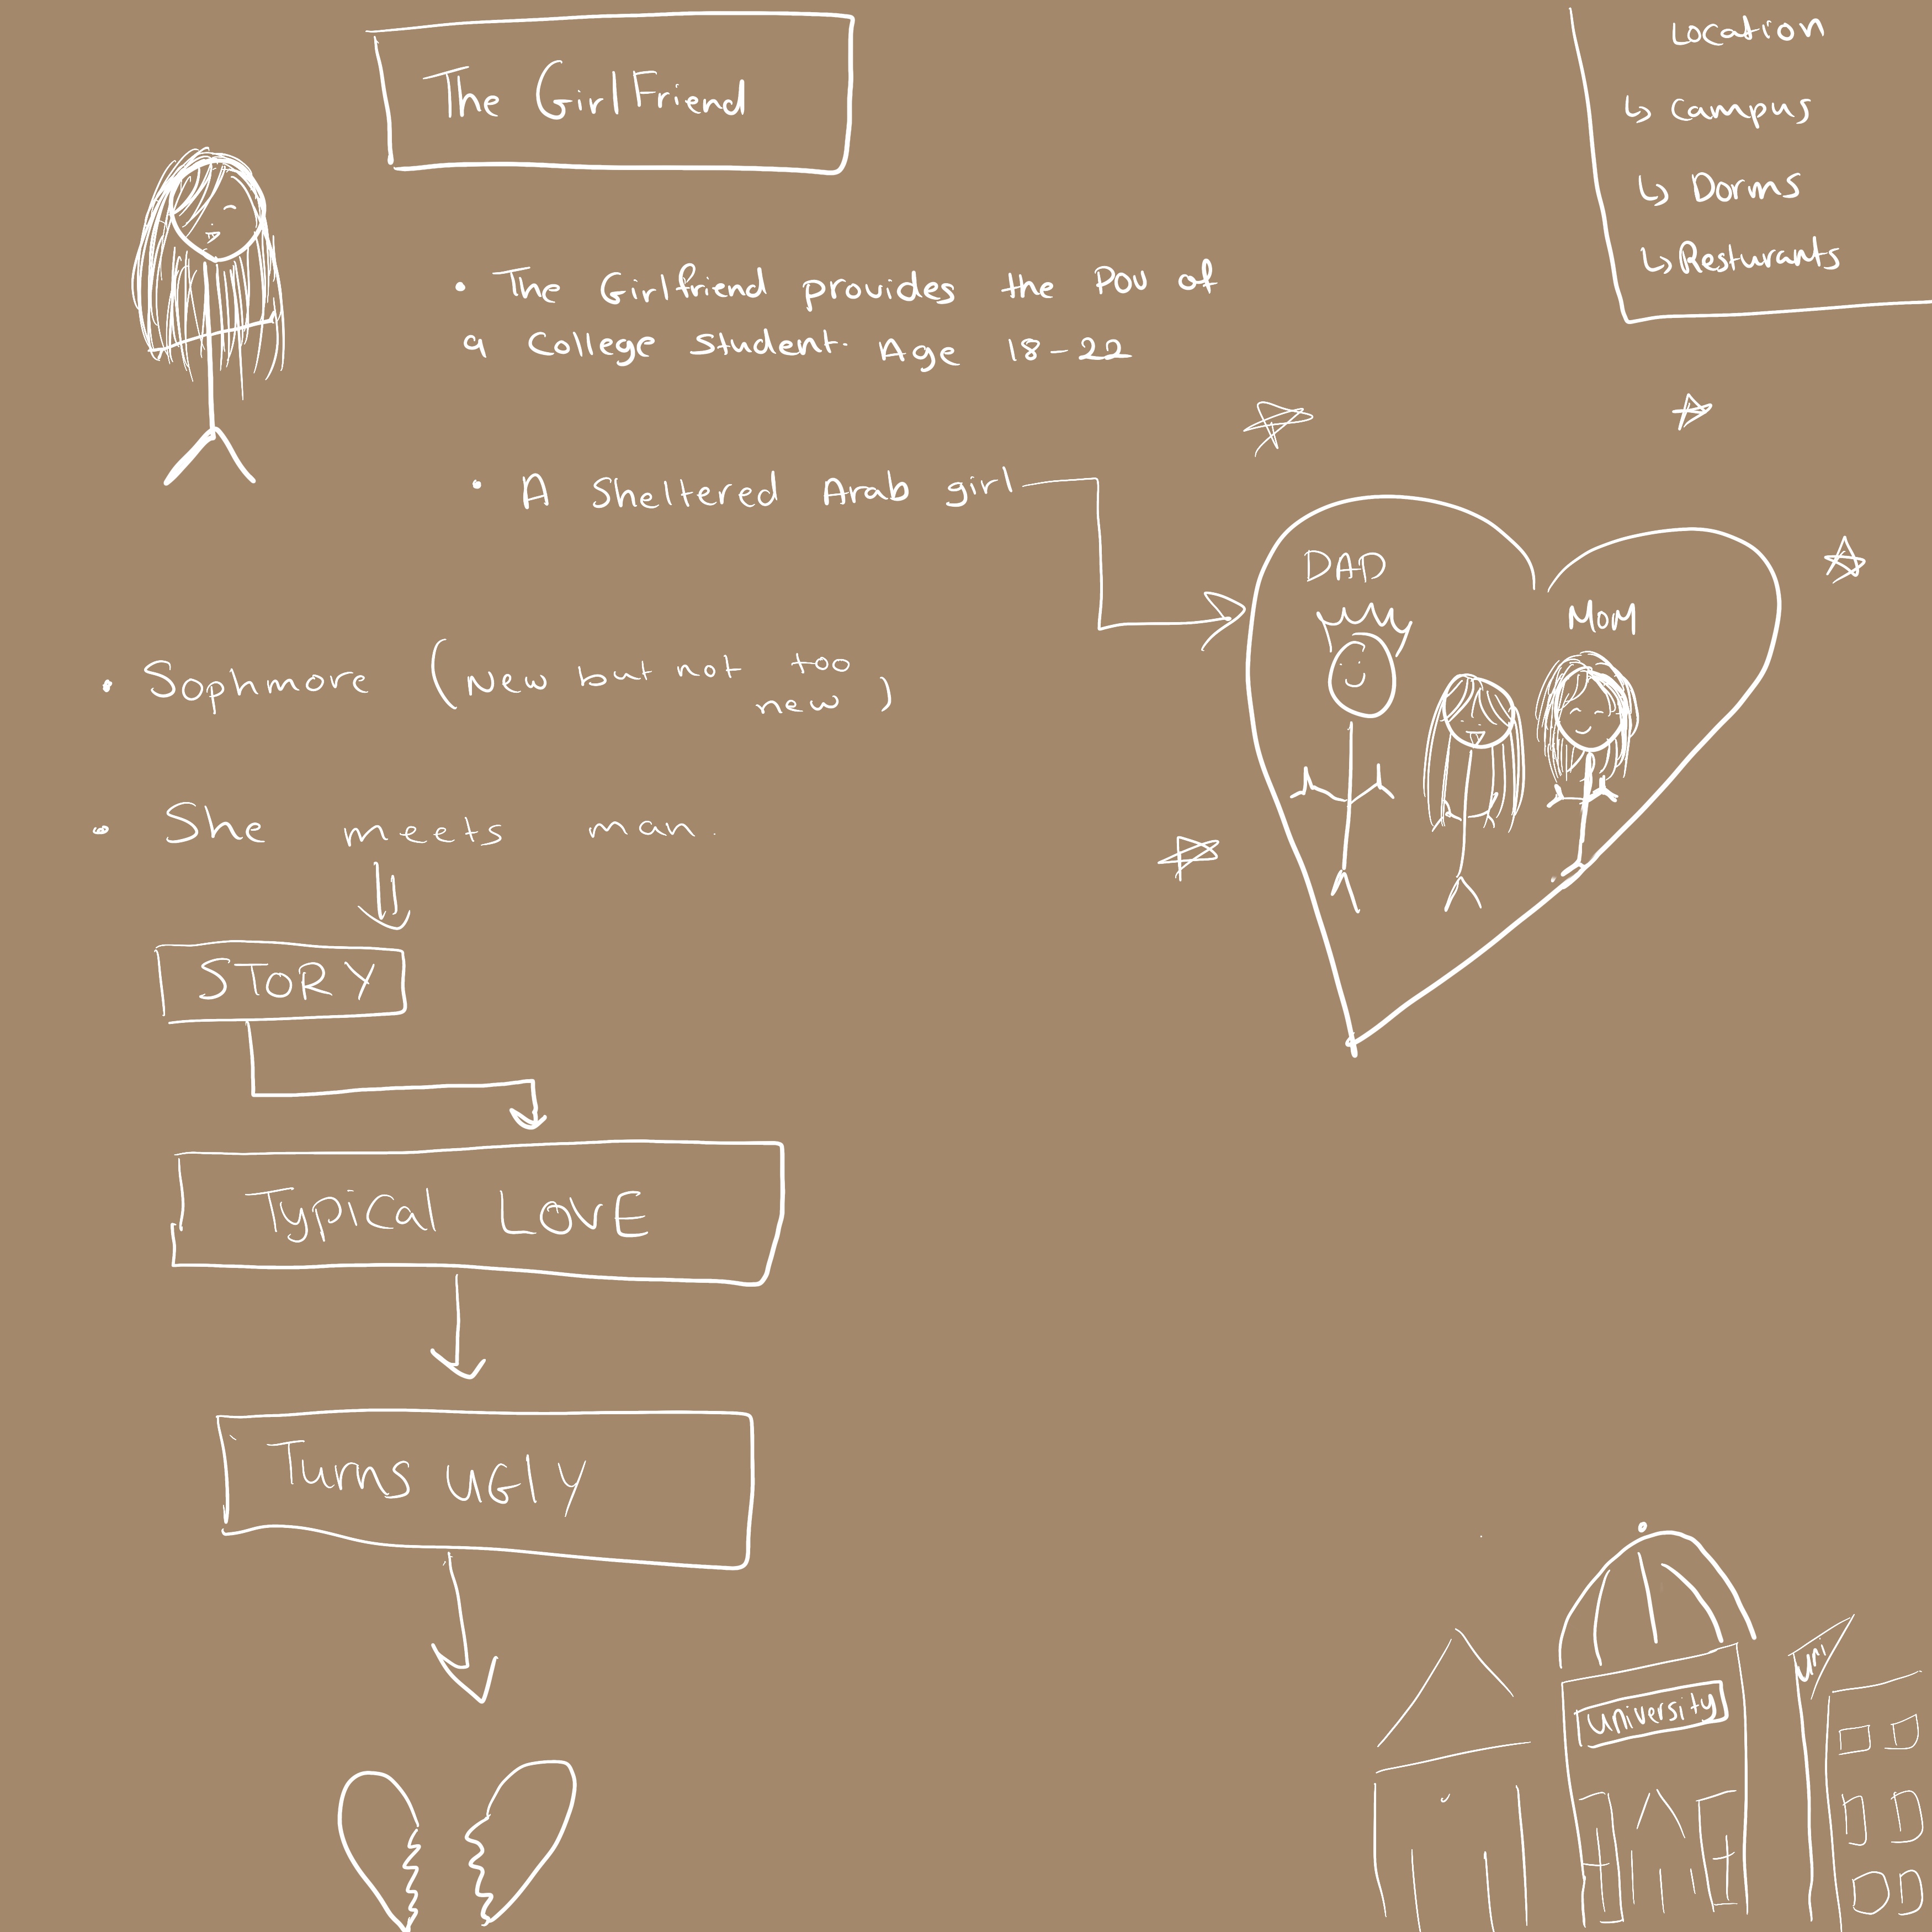 The GirlFriend
Location
↳ Campus
↳ Dorms
↳ Resturants
• The Girlfriend provides the Pov of
a College student. Age 18-22
• A sheltered Arab girl
DAD
MOM
• Sophmore (new but not too
new)
• She meets man.
STORY
Typical LOVE
Turns UGly
University
Uni